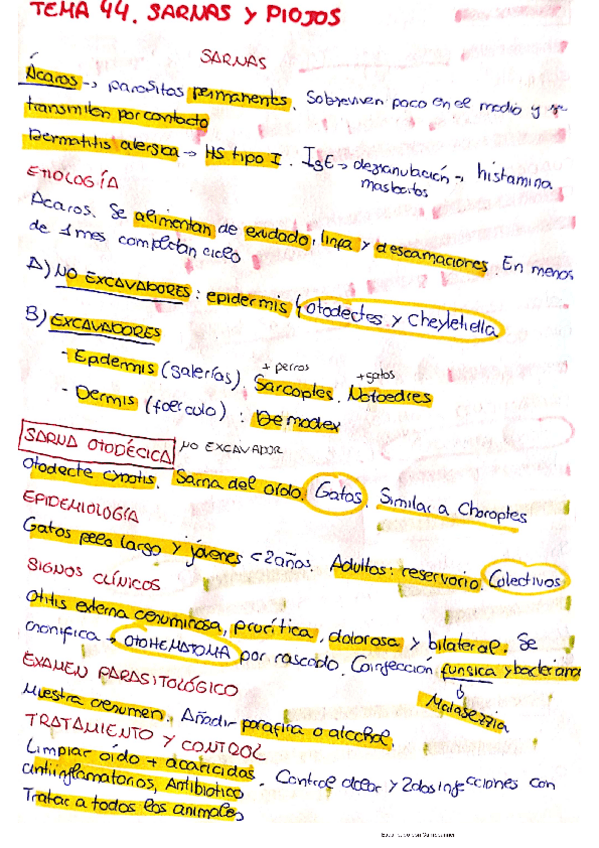 TEMA 44. SARNAS Y PIOJOS
SARNAS
Ácaros → parásitos permanentes. Sobreviven poco en el medio y se
transmiten por contacto
Dermatitis alergica → HS tipo I. IgE → degranulación → histamina.
mastocitos
ETIOLOGÍA
Ácaros. Se alimentan de exudado, linfa y descamaciones. En menos
de 1 mes completan ciclo
A) NO EXCAVADORES: epidermis { Otodectes y Cheyletiella
B) EXCAVADORES
+ perros +gatos
- Epidermis (galerías). Sarcoptes. Notoedres
- Dermis (folículo): Demodex
SARNA OTODÉCICA NO EXCAVADOR
Otodecte cynotis. Sarna del oído. Gatos. Similar a Choroptes
EPIDEMIOLOGÍA
Gatos pelo largo y jóvenes <2años. Adultos: reservorio. Colectivos
SIGNOS CLÍNICOS
Otitis externa ceruminosa, prurítica, dolorosa y bilateral. Se
cronifica → OTOHEMATOMA por rascado. Coinfección fungica y bacteriana
Malasezzia
EXAMEN PARASITOLÓGICO
Muestra cerumen. Añadir parafina o alcohol
TRATAMIENTO Y CONTROL
Limpiar oído + acaricidas. Control dolor y 2das infecciones con
antiinflamatorios, Antibiotico
Tratar a todos los animales